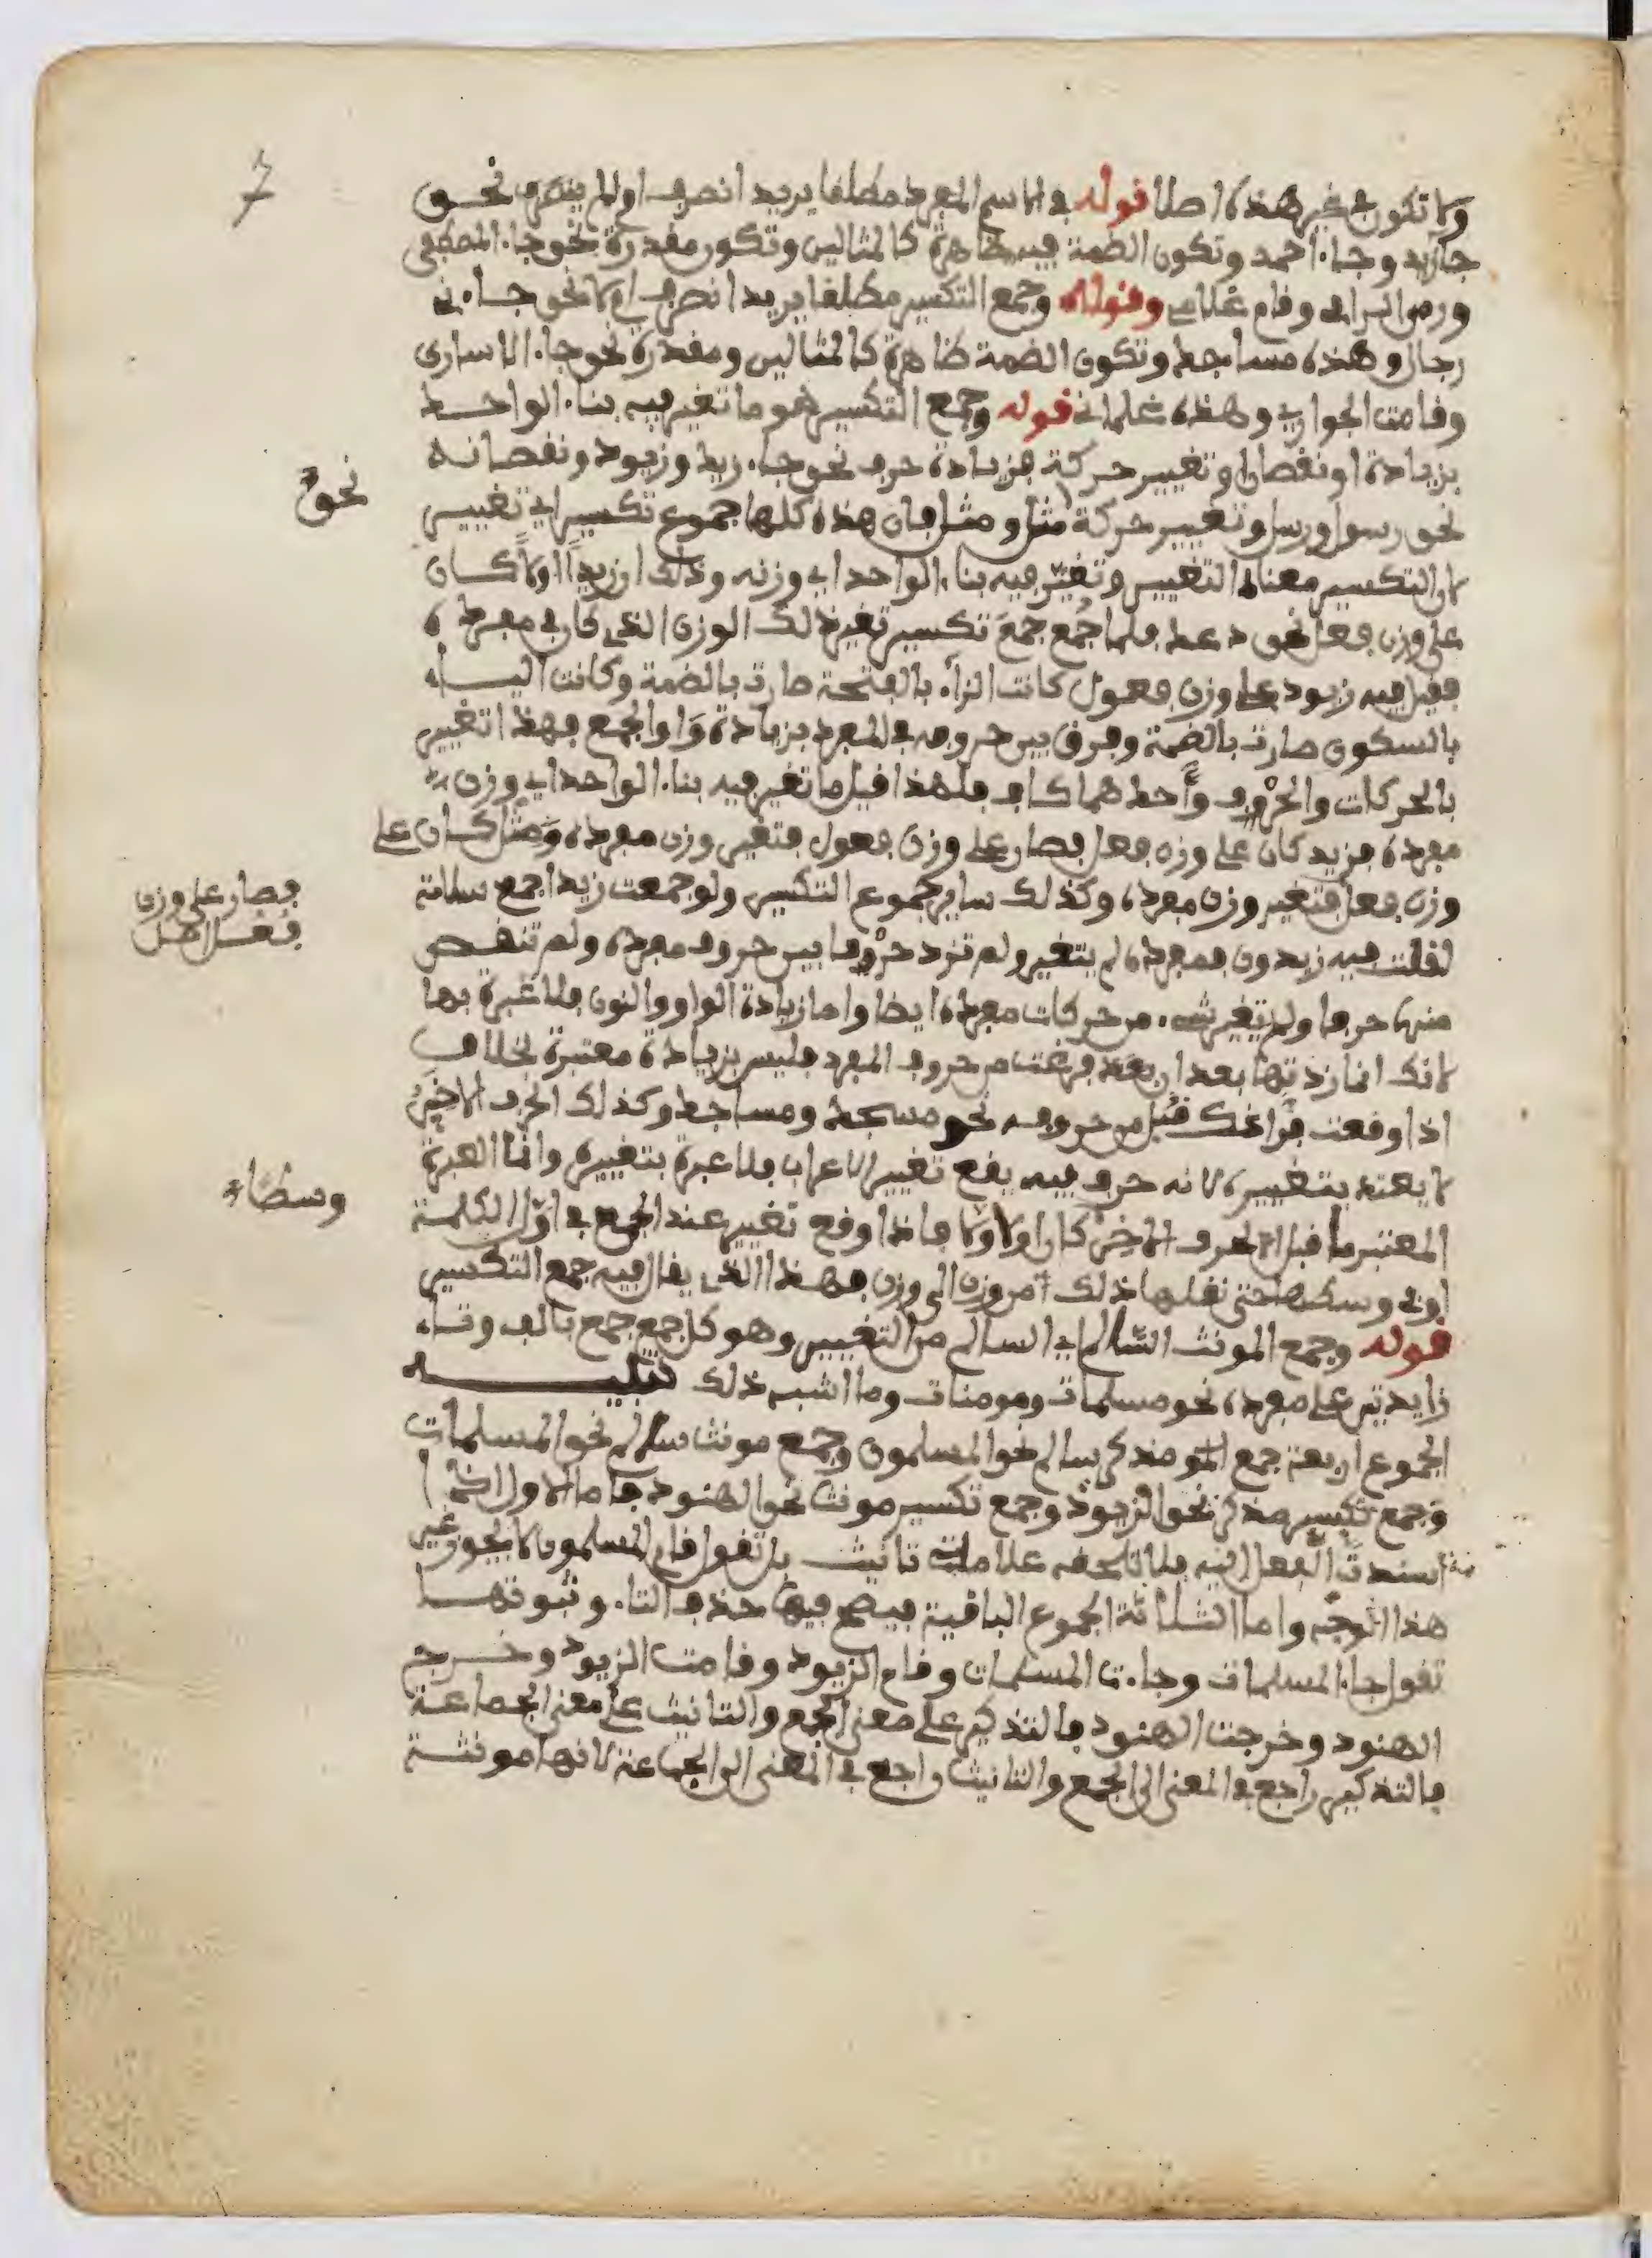 7
ولا تكون في غير هذه اصلا قوله في الاسم المفرد مطلقا يريد انصرف او لم ينصرف نحو
جا زيد وجاء احمد وتكون الضمة فيه ظاهرة كالمثالين وتكون مقدرة نحو جاء المصطفى
ورمى الرامي وقام غلامي وقوله وجمع التكسير مطلقا يريد انصرف ام لا نحو جاءني
رجال وهذه مساجد وتكون الضمة ظاهرة كالمثالين ومقدرة نحو جاء الاسارى
وقامت الجواري وهذه غلماني قوله وجمع التكسير هو ما تغير فيه بناء الواحد
بزيادة او نقصان او تغيير حركة فزيادة حرف نحو جاء زيد وزيود ونقصانه
نحو رسول ورسل وتغيير حركة مثل ومثل فان هذه كلها جموع تكسير اي تغيير
نحو
لان التكسير معناه التغيير وتغير فيه بناء الواحد اي وزنه وذلك ان زيدا اولا كان
على وزن فعل نحو دعد فلما جُمع جمعَ تكسير تغير ذلك الوزن الذي كان في مفرده
فقيل فيه زيود على وزن فعول كانت الزاء بالفتحة صارت بالضمة وكانت الياء
بالسكون صارت بالضمة وفرق بين حروفه في المفرد بزيادة واو الجمع فهذا تغيير
بالحركات والحروف وأحدهما كاف فلهذا قيل ما تغير فيه بناء الواحد اي وزن
مفرده فزيد كان على وزن فعل فصار على وزن فعول فتغير وزن مفرده ومثل كان على
وزن فعل فتغير وزن مفرده وكذلك ساير جموع التكسير ولو جمعت زيدا جمع سلامة
فصار على وزن
فُعُل
لقلت فيه زيدون فمفرده لم يتغير ولم تزد حرفا بين حروف مفرده ولم تنقص
منها حرفا ولم يتغير شيء من حركات مفرده ايضا واما زيادة الواو والنون فلا عبرة بها
لانك انما زدتها بعد ان فرغت من حروف المفرد فليس بزيادة معتبرة بخلاف
اذا وقعت قبل فراغك من حروفه نحو مسجد ومساجد وكذلك الحرف الاخير
لا يعتد بتغييره لانه حرف فيه يقع تغيير الاعراب فلا عبرة بتغييره وانما العبرة
المعتبر ما قبل الحرف الاخير كان اولا ولا فاذا وقع تغيير عند الجمع في اول الكلمة
وسطا
او في وسطها حتى نقلها ذلك من وزن الى وزن فهذا الذي يقال فيه جمع التكسير
قوله وجمع المونث السالم اي السالم من التغيير وهو كل جمع جمع بالف وتاء
زايدتين على مفرده نحو مسلمات ومومنات وما اشبه ذلك تنبيه
الجموع اربعة جمع مذكر سالم نحو المسلمون وجمع مونث سالم نحو المسلمات
وجمع تكسير مذكر نحو الزيود وجمع تكسير مونث نحو الهنود فاما الاول اذا
اسندت الفعل اليه فلا تلحقه علامة تانيث بل تقول قام المسلمون لا يجوز غير
هذا الوجه واما الثلاثة الجموع الباقية فيصح فيها حذف التاء وثبوتها
تقول جاء المسلمات وجاءت المسلمات وقام الزيود وقامت الزيود وخرج
الهنود وخرجت الهنود فالتذكير على معنى الجمع والتانيث على معنى الجماعة
فالتذكير راجع في المعنى الى الجمع والتانيث راجع في المعنى الى الجماعة لانها مونثة